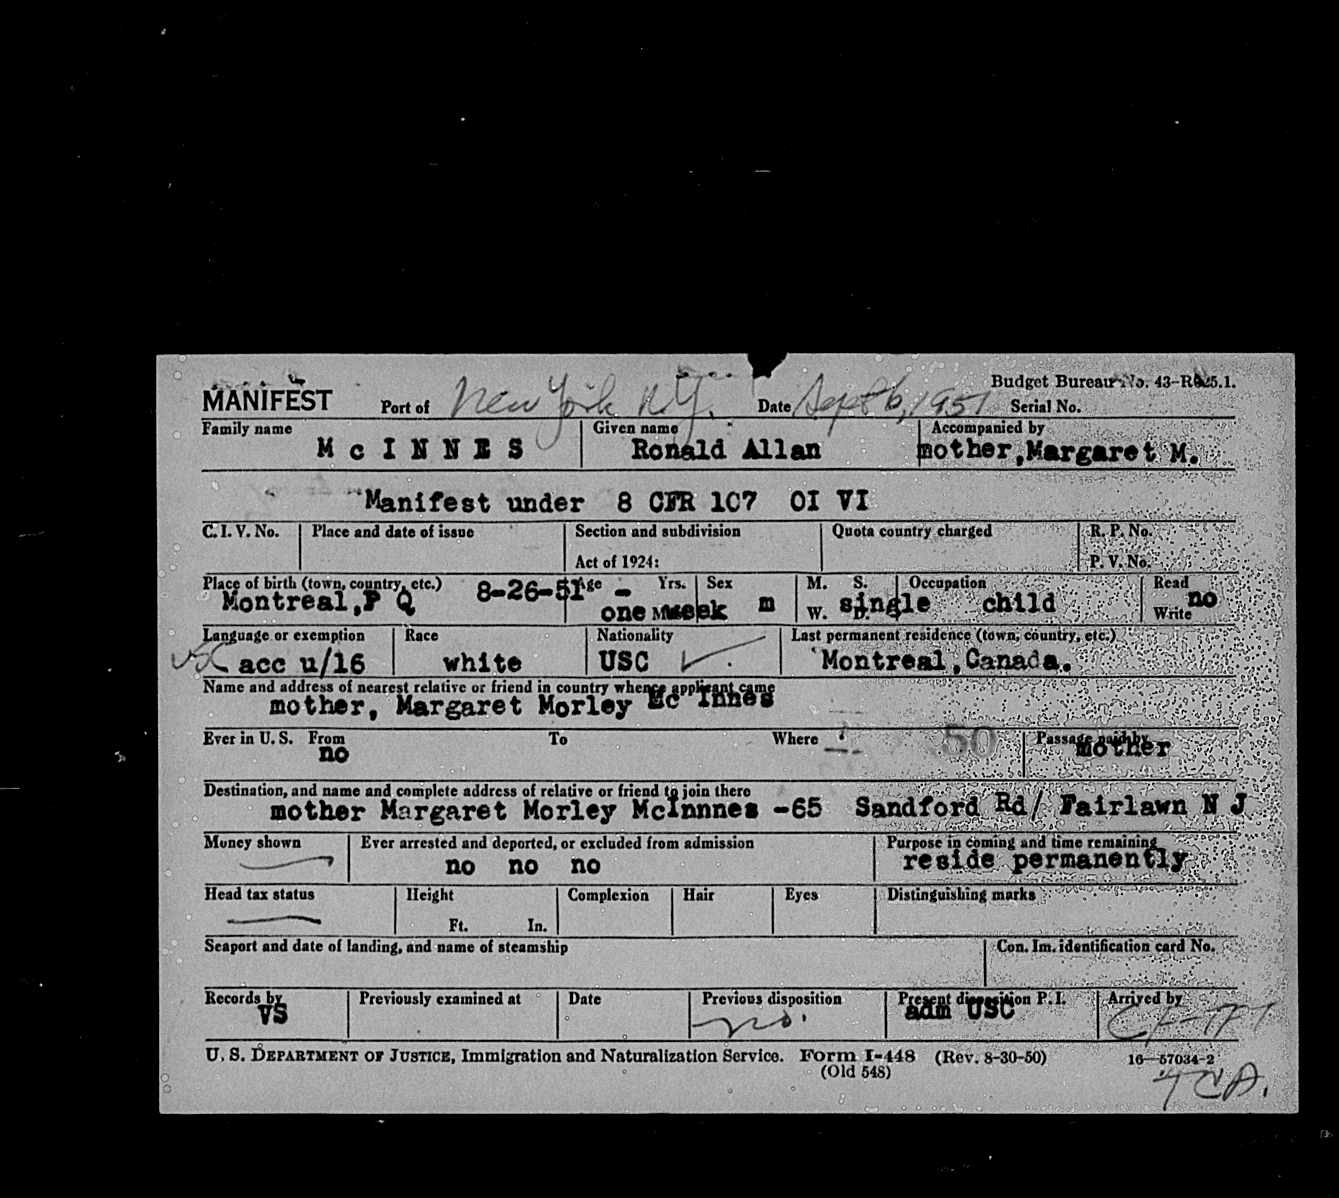 MANIFEST Port of New York N.Y. Date Sept 6, 1951 Serial No. Budget Bureau No. 43-R025.1.
Family name Given name Accompanied by
McINNES Ronald Allan mother, Margaret M.
Manifest under 8 CFR 107 OI VI
C. I. V. No. Place and date of issue Section and subdivision Quota country charged R. P. No.
Act of 1924: P. V. No.
Place of birth (town, country, etc.) 8-26-51 Age - Yrs. Sex M. S. Occupation Read no
Montreal, P Q one week m W. D. single child Write
Language or exemption Race Nationality Last permanent residence (town, country, etc.)
acc u/16 white USC Montreal, Canada.
Name and address of nearest relative or friend in country whence applicant came
mother, Margaret Morley Mc Innes
Ever in U. S. From To Where 50 Passage paid by
no mother
Destination, and name and complete address of relative or friend to join there
mother Margaret Morley McInnnes -65 Sandford Rd/ Fairlawn N J
Money shown Ever arrested and deported, or excluded from admission Purpose in coming and time remaining
no no no reside permanently
Head tax status Height Complexion Hair Eyes Distinguishing marks
Ft. In.
Seaport and date of landing, and name of steamship Con. Im. identification card No.
Records by Previously examined at Date Previous disposition Present disposition P. I. Arrived by
VS no. adm USC
U. S. DEPARTMENT OF JUSTICE, Immigration and Naturalization Service. Form I-448 (Rev. 8-30-50) 16—57034-2
(Old 548) TCA.